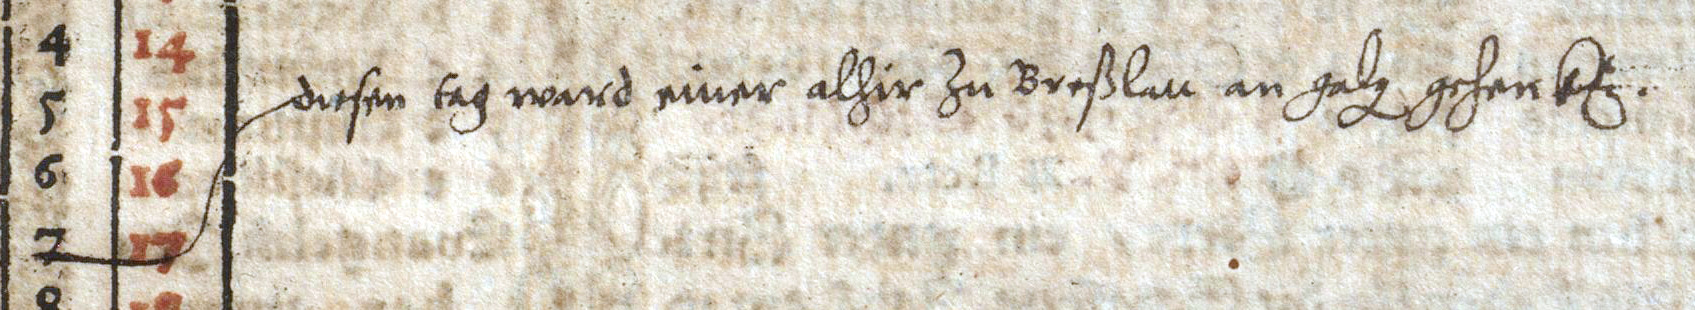 4 14
5 15 diesen tag ward einer alhir zu Breßlau an galg gehenkt.
6 16
7 17
8 18